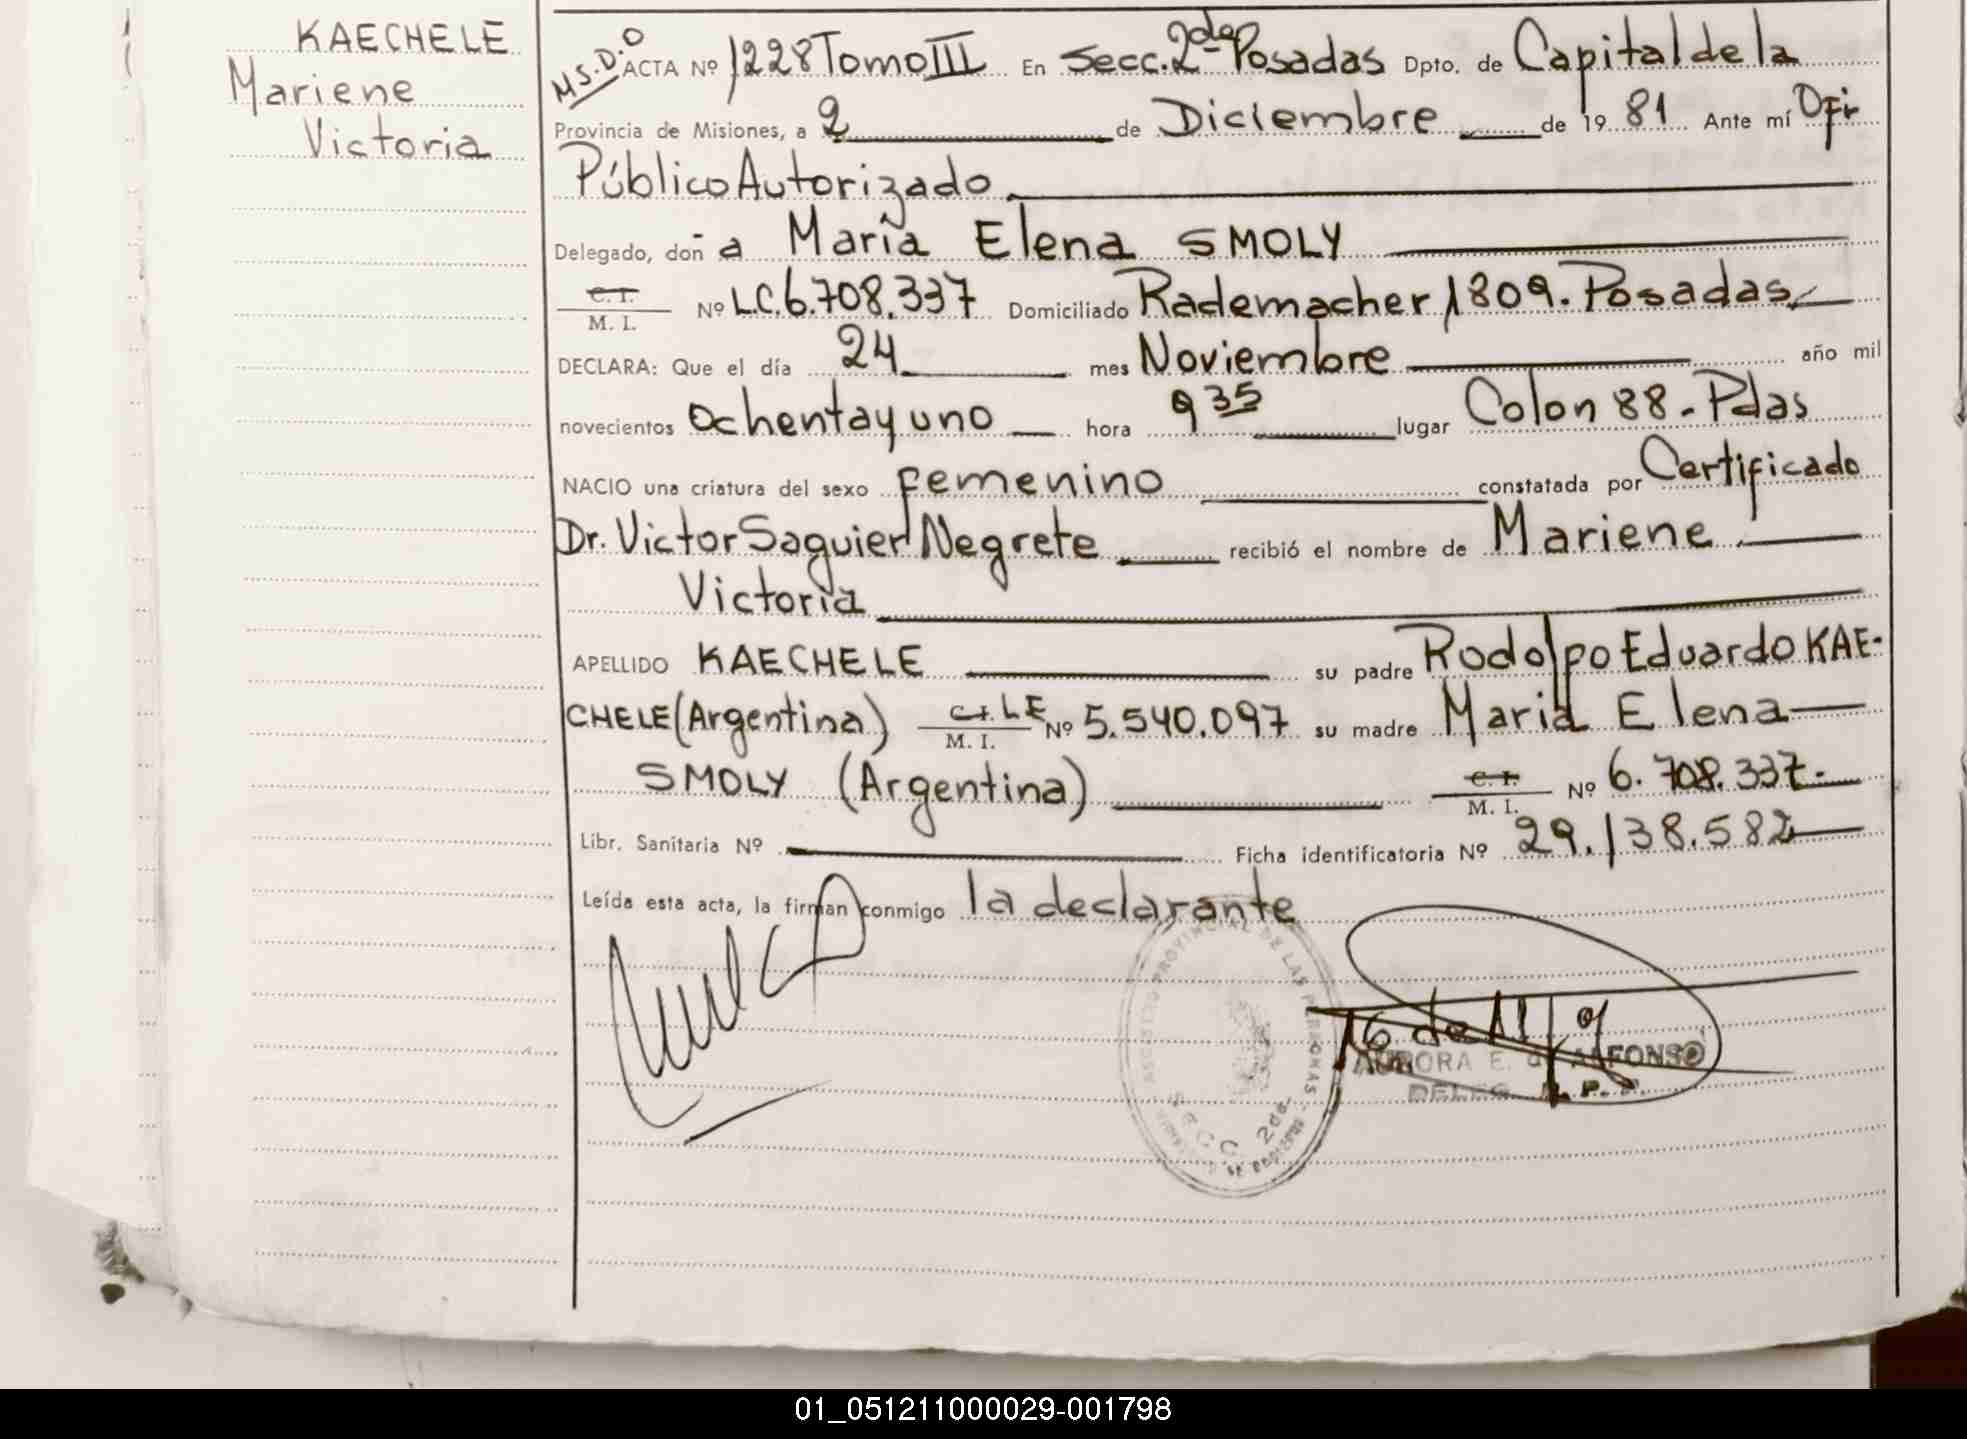 KAECHELE
Mariene
Victoria
M.S.D.
ACTA Nº 1228 Tomo III En Secc. 2da Posadas Dpto. de Capital de la
Provincia de Misiones, a 2 de Diciembre de 1981 Ante mí Ofi
Público Autorizado
Delegado, doña María Elena SMOLY
C. I. M. I. Nº L.C. 6.708.337 Domiciliado Rademacher 1809. Posadas
DECLARA: Que el día 24 mes Noviembre año mil
novecientos ochenta y uno hora 9 35 lugar Colon 88 - Pdas
NACIO una criatura del sexo femenino constatada por Certificado
Dr. Victor Saguier Negrete recibió el nombre de Mariene
Victoria
APELLIDO KAECHELE su padre Rodolfo Eduardo KAE-
CHELE (Argentina) C.I. LE M. I. Nº 5.540.097 su madre Maria Elena
SMOLY (Argentina) C. I. M. I. Nº 6.708.337.
Libr. Sanitaria Nº Ficha identificatoria Nº 29.138.582
Leída esta acta, la firman conmigo la declarante
PROVINCIAL DE LAS PERSONAS
SECC 2da
AURORA E. de ALFONSO
DELEG. R. P. P.
01_051211000029-001798